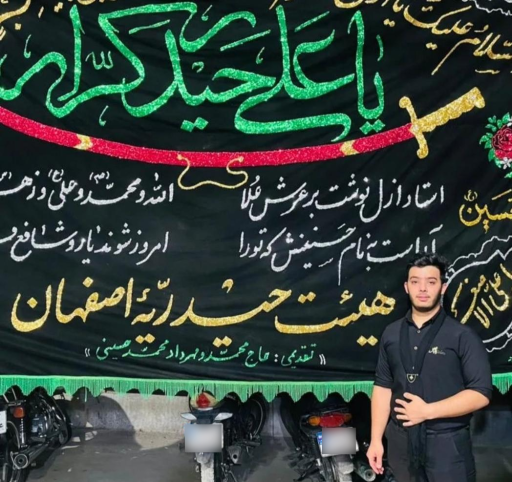 السلام علیک یا
یا علی حیدر کرار
استاد ازل نوشت بر عرش عُلا
الله و محمد و علی و زهرا
آن است به نام حسینش که تو را
امروز شوند یار و شافع
حسین
هیئت حیدریّه اصفهان
« تقدیمی : حاج محمد و مهرداد محمد حسینی »